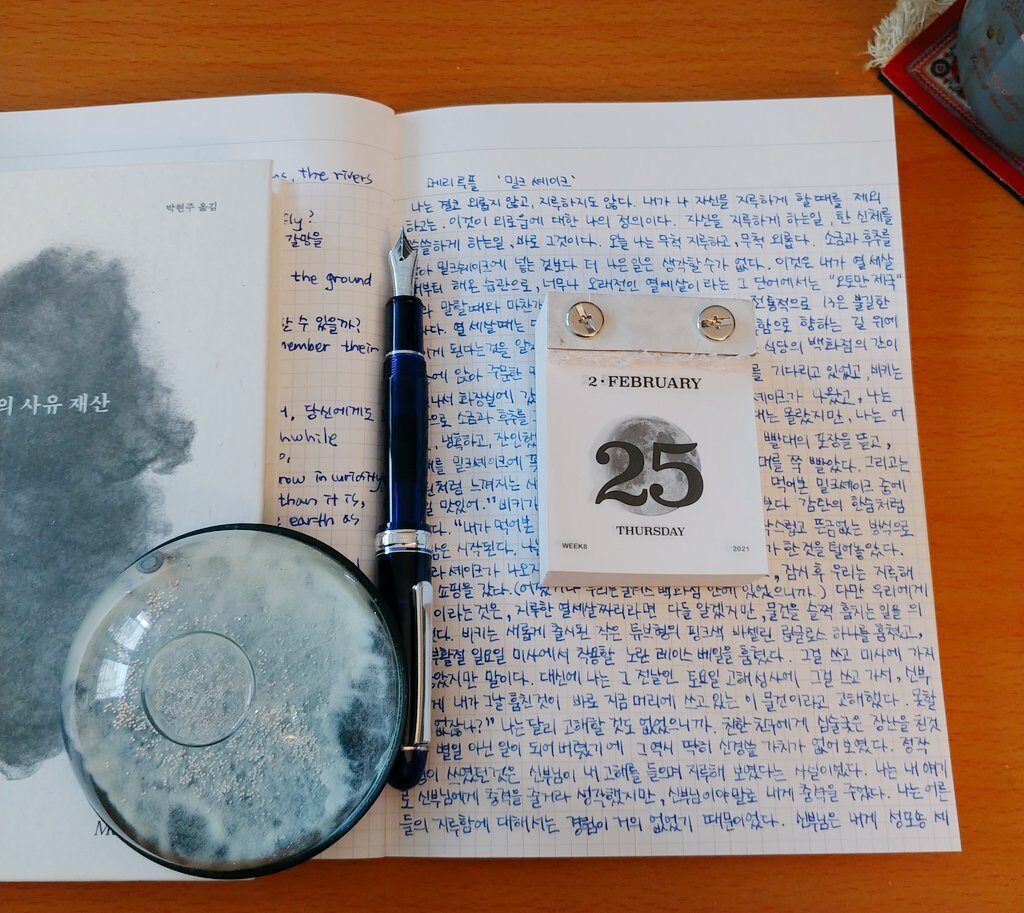 박현주 옮김
의 사유 재산
the rivers
fly?
갈망을
the ground
할 수 있을까?
remember their
당신에게도
row in curiosity
than it is,
earth as
메리 루플 '밀크 셰이크'
나는 결코 외롭지 않고, 지루하지도 않다. 내가 나 자신을 지루하게 할 때를 제외
하고는. 이것이 외로움에 대한 나의 정의이다. 자신을 지루하게 하는 일, 한 신체를
쓸쓸하게 하는 일, 바로 그것이다. 오늘 나는 무척 지루하고, 무척 외롭다. 소금과 후추를
밀크셰이크에 넣는 것보다 더 나은 일은 생각할 수가 없다. 이것은 내가 열세살
부터 해온 습관으로, 너무나 오래전인 열세살이라는 그 단어에서는 "오토만 제국"
말할 때와 마찬가 전통적으로 13은 불길한
열세살때는 함으로 향하는 길 위에
게 된다는 것을 알 식당의 백화점의 간이
에 앉아 주문한 를 기다리고 있었고, 비키는
나서 화장실에 갔 셰이크가 나왔고, 나는
으로 소금과 후추를 는 몰랐지만, 나는 어
냉혹하고, 잔인했 빨대의 포장을 뜯고,
를 밀크셰이크에 대를 쭉 빨았다. 그리고는
처럼 느껴지는 먹어본 밀크셰이크 중에
맛있어." 비키가 보다 감탄의 한숨처럼
"내가 먹어본 스럽고 뜬금없는 방식으로
은 시작된다. 가 한 것을 털어놓았다.
셰이크가 나오자 잠시 후 우리는 지루해
쇼핑을 갔다. (어쨌거나 우리는 백화점 안에 있었으니까.) 다만 우리에게
이라는 것은, 지루한 열세살짜리라면 다들 알겠지만, 물건을 슬쩍 훔치는 일을 의
다. 비키는 새롭게 출시된 작은 튜브형의 핑크색 바셀린 립글로스 하나를 훔쳤고,
부활절 일요일 미사에서 착용할 노란 레이스 베일을 훔쳤다. 그걸 쓰고 미사에 가지
않았지만 말이다. 대신에 나는 그 전날인 토요일 고해성사에 그걸 쓰고 가서, 신부
게 내가 그날 훔친 것이 바로 지금 머리에 쓰고 있는 이 물건이라고 고해했다. 못할
없잖나?" 나는 달리 고해할 것도 없었으니까. 친한 친구에게 심술궂은 장난을 친 것
별일 아닌 일이 되어버렸기에 그 역시 딱히 신경쓸 가치가 없어 보였다. 정작
쓰였던 것은 신부님이 내 고해를 들으며 지루해 보였다는 사실이었다. 나는 내 얘기
도 신부님에게 충격을 줄거라 생각했지만, 신부님이야말로 내게 충격을 주었다. 나는 어른
들의 지루함에 대해서는 경험이 거의 없었기 때문이었다. 신부님은 내게 성모송 세
2·FEBRUARY
25
THURSDAY
WEEK8
2021